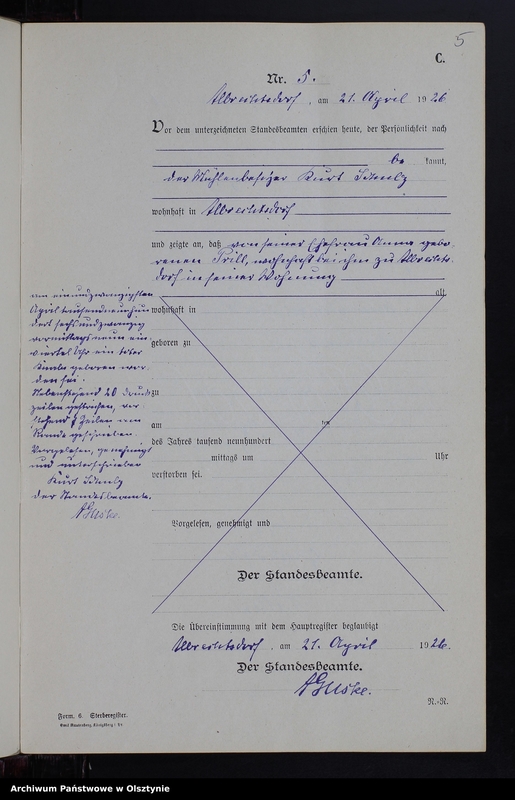 5
C.
Nr. 5.
Albrechtsdorf, am 21. April 1926
Vor dem unterzeichneten Standesbeamten erschien heute, der Persönlichkeit nach
be kannt,
der Mühlenbesitzer Kurt
wohnhaft in Albrechtsdorf
und zeigte an, daß von seiner Ehefrau Anna gebo-
renen Prill, wohnhaft bei ihm zu Albrechts-
dorf in seiner Wohnung
alt,
am einundzwanzigsten
April tausendneunhun
dert sechsundzwanzig
vormittags neun ein
viertel Uhr ein totes
geboren wor
den sei.
20 Druck
zeilen gestrichen, vor
stehend Zeilen am
Rande geschrieben.
Vorgelesen, genehmigt
und unterschrieben
Kurt
Der Standesbeamte.
wohnhaft in
geboren zu
zu
am ten
des Jahres tausend neunhundert
mittags um Uhr
verstorben sei.
Vorgelesen, genehmigt und
Der Standesbeamte.
Die Übereinstimmung mit dem Hauptregister beglaubigt
Albrechtsdorf, am 21. April 1926.
Der Standesbeamte.
R.-R.
Form. 6 Sterberegister.
Archiwum Państwowe w Olsztynie